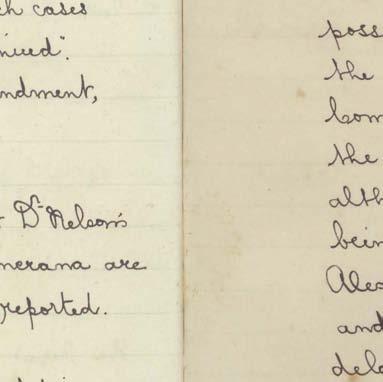 ch cases
nued".
ndment,
Dr. Nelson's
nerana are
reported.
poss
the
Com
the
alth
bein
Alex
and
dela